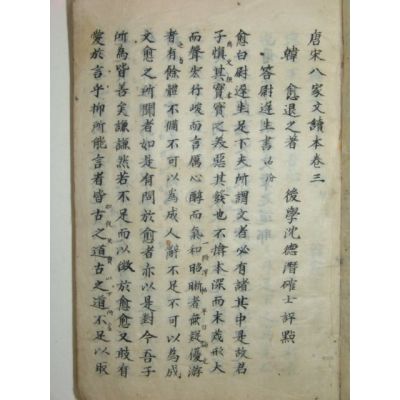 唐宋八家文讀本卷三
韓 愈退之著 後學沈德潛確士評點
答尉遲生書
愈白尉遲生足下夫所謂文者必有諸其中是故君
子慎其實實之美惡其發也不揜本深而末茂形大
而聲宏行峻而言厲心醇而氣和昭晰者無疑優游
者有餘體不備不可以為成人辭不足不可以為成
文愈之所聞者如是有問於愈者亦以是對今吾子
所為皆善矣謙謙然若不足而以徵於愈愈又敢有
愛於言乎抑所能言者皆古之道古之道不足以取